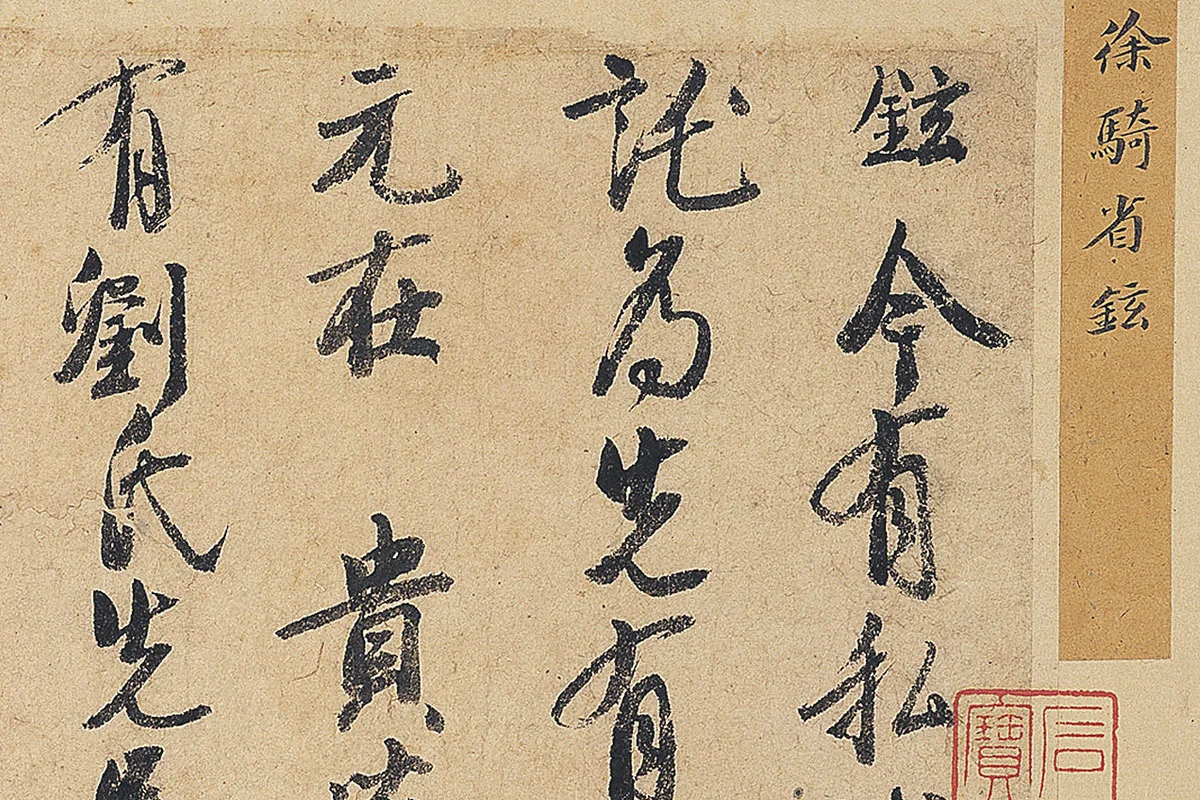 徐騎省鉉
鉉今有私
託為先有
元在 貴
有劉氏先